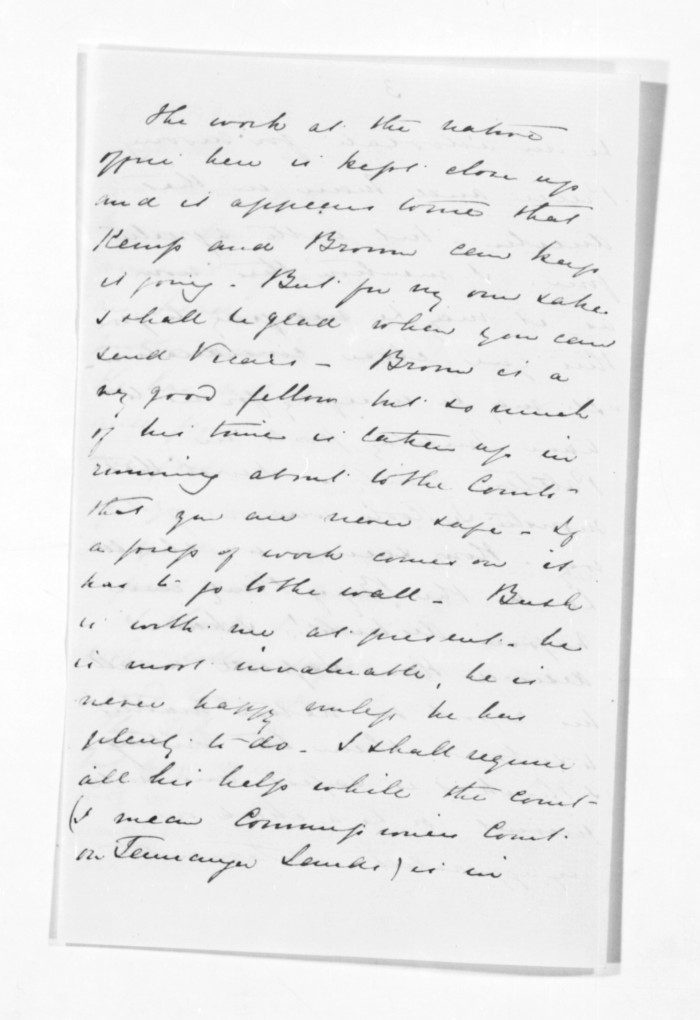 The work at the native
office here is kept close up
and it appears to me that
Kemp and Brown can keep
it going. But for my own sake
I shall be glad when you can
send Vicars – Brown is a
vy good fellow but so much
of his time is taken up in
running about to the Courts –
that you are never safe – If
a press of work comes on it
has to go to the wall – Bush
is with me at present – he
is most invaluable, he is
never happy unless he has
plenty to do – I shall require
all his help while the Court –
(I mean Commissioners Court
on Tauranga Lands) is in